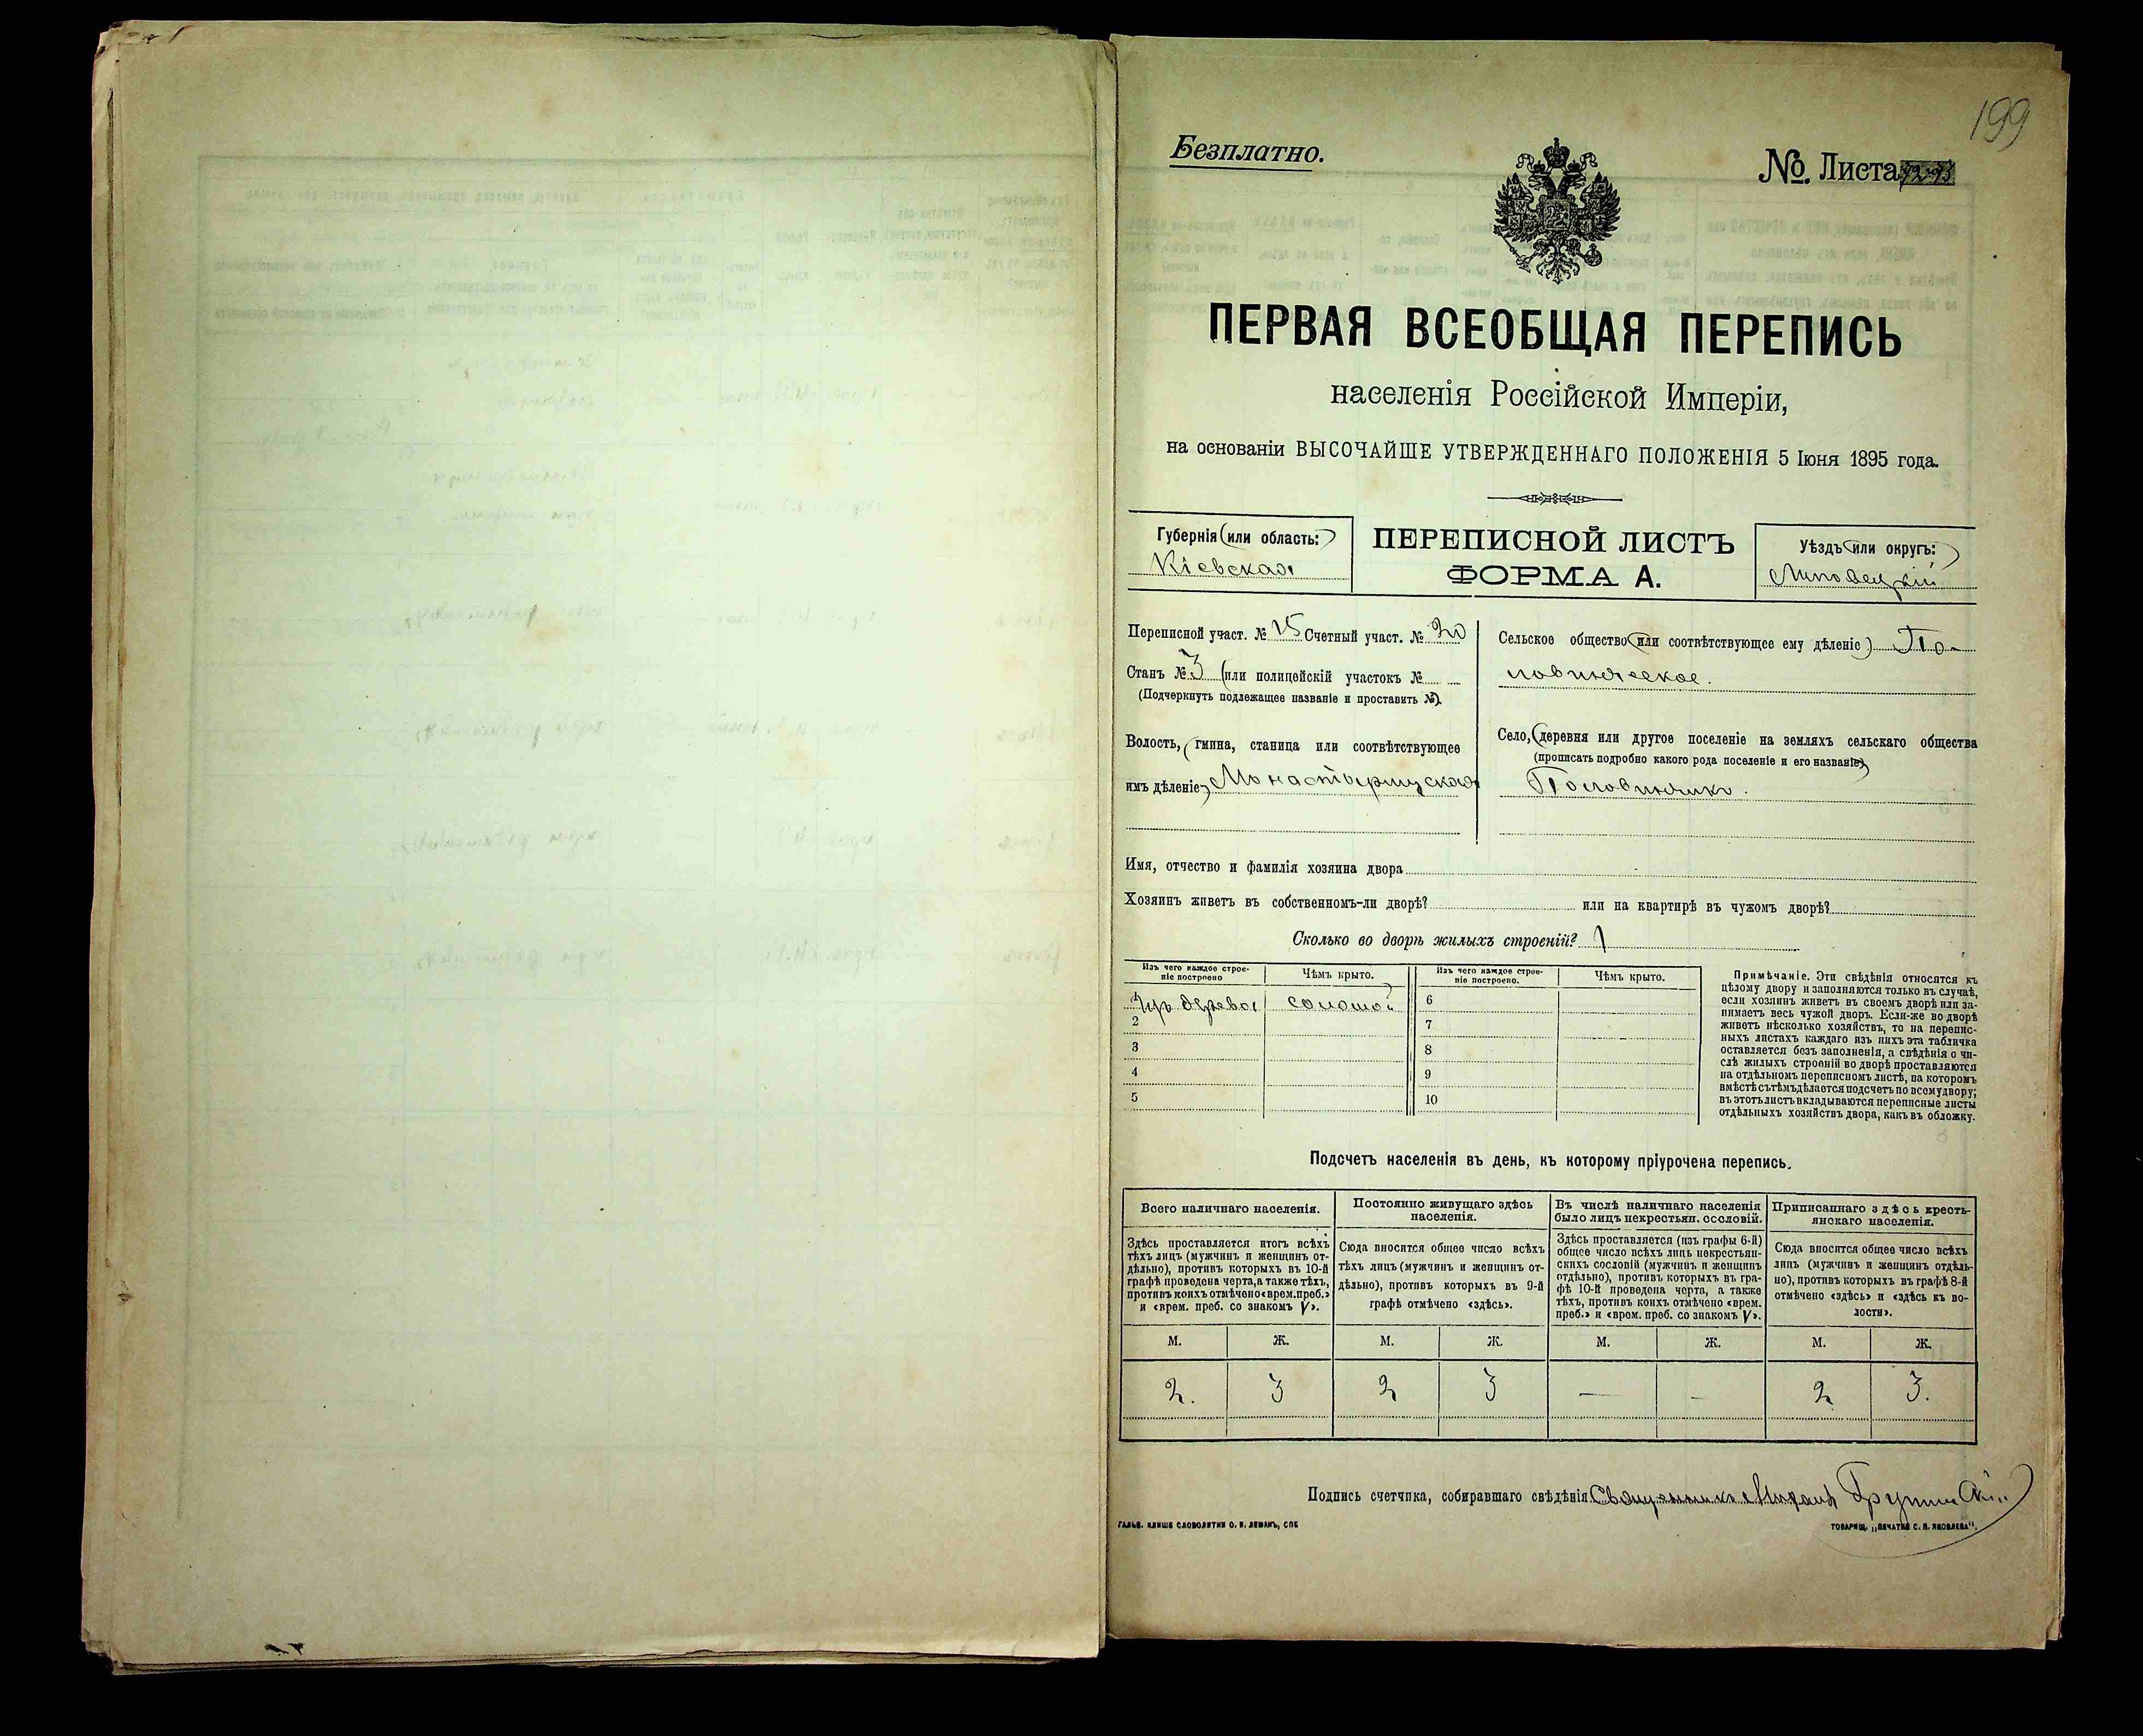 199
Безплатно.
№. Листа
ПЕРВАЯ ВСЕОБЩАЯ ПЕРЕПИСЬ
населенія Россійской Имперіи,
на основаніи ВЫСОЧАЙШЕ УТВЕРЖДЕННАГО ПОЛОЖЕНІЯ 5 Іюня 1895 года.
Губернія (или область:)
Кіевская
ПЕРЕПИСНОЙ ЛИСТЪ
ФОРМА А.
Уѣздъ (или округъ:)
Липовецкій
Переписной участ. № 15 Счетный участ. № 20
Станъ № 3 (или полицейскій участокъ №
(Подчеркнуть подлежащее названіе и проставить №).
Волость, (гмина, станица или соотвѣтствующее
имъ дѣленіе) Монастырищская
Сельское общество (или соотвѣтствующее ему дѣленіе) По-
Село, (деревня или другое поселеніе на земляхъ сельскаго общества
(прописать подробно какого рода поселеніе и его названіе)
Имя, отчество и фамилія хозяина двора
Хозяинъ живетъ въ собственномъ-ли дворѣ? или на квартирѣ въ чужомъ дворѣ?
Сколько во дворѣ жилыхъ строеній? 1
Изъ чего каждое строе-
ніе построено
Чѣмъ крыто.
Изъ чего каждое строе-
ніе построено.
Чѣмъ крыто.
изъ дерева соломой 6
2 7
3 8
4 9
5 10
Примѣчаніе. Эти свѣдѣнія относятся къ
цѣлому двору и заполняются только въ случаѣ,
если хозяинъ живетъ въ своемъ дворѣ или за-
нимаетъ весь чужой дворъ. Если-же во дворѣ
живетъ нѣсколько хозяйствъ, то на перепис-
ныхъ листахъ каждаго изъ нихъ эта табличка
оставляется безъ заполненія, а свѣдѣнія о чи-
слѣ жилыхъ строеній во дворѣ проставляются
на отдѣльномъ переписномъ листѣ, на которомъ
вмѣстѣ съ тѣмъ дѣлается подсчетъ по всему двору;
въ этотъ листъ вкладываются переписные листы
отдѣльныхъ хозяйствъ двора, какъ въ обложку.
Подсчетъ населенія въ день, къ которому пріурочена перепись.
Всего наличнаго населенія.
Здѣсь проставляется итогъ всѣхъ
тѣхъ лицъ (мужчинъ и женщинъ от-
дѣльно), противъ которыхъ въ 10-й
графѣ проведена черта, а также тѣхъ,
противъ коихъ отмѣчено «врем. преб.»
и «врем. преб. со знакомъ V».
Постоянно живущаго здѣсь
населенія.
Сюда вносится общее число всѣхъ
тѣхъ лицъ (мужчинъ и женщинъ от-
дѣльно), противъ которыхъ въ 9-й
графѣ отмѣчено «здѣсь».
Въ числѣ наличнаго населенія
было лицъ некрестьян. сословій.
Здѣсь проставляется (изъ графы 6-й)
общее число всѣхъ лицъ некрестьян-
скихъ сословій (мужчинъ и женщинъ
отдѣльно), противъ которыхъ въ гра-
фѣ 10-й проведена черта, а также
тѣхъ, противъ коихъ отмѣчено «врем.
преб.» и «врем. преб. со знакомъ V».
Приписаннаго здѣсь кресть-
янскаго населенія.
Сюда вносится общее число всѣхъ
лицъ (мужчинъ и женщинъ отдѣль-
но), противъ которыхъ въ графѣ 8-й
отмѣчено «здѣсь» и «здѣсь къ во-
лости».
М. Ж. М. Ж. М. Ж. М. Ж.
2. 3 2 3 — - 2 3.
Подпись счетчика, собиравшаго свѣдѣнія Священникъ
ГАЛЬВ. КЛИШЕ СЛОВОЛИТНИ О. И. ЛЕМАНЪ, СПБ
ТОВАРИЩ. „ПЕЧАТНЯ С. П. ЯКОВЛЕВА".